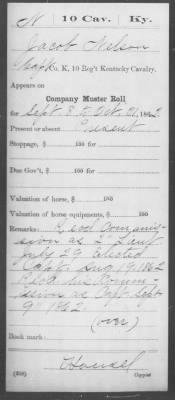 N | 10 Cav. | Ky.
Jacob Nelson
Co. K, 10 Reg't Kentucky Cavalry.
Appears on
Company Muster Roll
for Sept. 8 to Oct. 21, 1862.
Present or absent Present
Stoppage, $ 100 for
Due Gov't, $ 100 for
Valuation of horse, $ 100
Valuation of horse equipments, $ 100
Remarks: Recd Commis-
sion as 2" Lieut
July 29 Elected
Capt. Aug 19 1862
Recd his Commis-
sion as Capt Sept
9" 1862.
(over)
Book mark:
(358) Copyist.